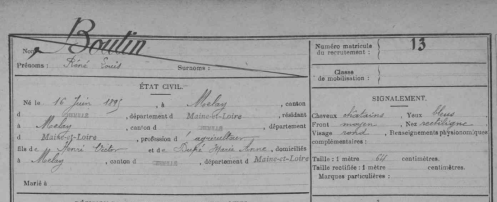 Nom : Boulin
Prénoms : Réné Louis Surnoms :
Numéro matricule du recrutement : 13
Classe de mobilisation :
ÉTAT CIVIL.
Né le 16 Juin, à Melay, canton
d, département d Maine-et-Loire, résidant
à Melay, canton d, département
d Maine-et-Loire, profession d' agriculteur
fils de et de Marie Anne, domiciliés
à Melay, canton d, département d Maine-et-Loire
Marié à
SIGNALEMENT.
Cheveux châtains Yeux bleus
Front moyen Nez rectiligne
Visage rond Renseignements physionomiques
complémentaires :
Taille : 1 mètre centimètres.
Taille rectifiée : 1 mètre centimètres.
Marques particulières :